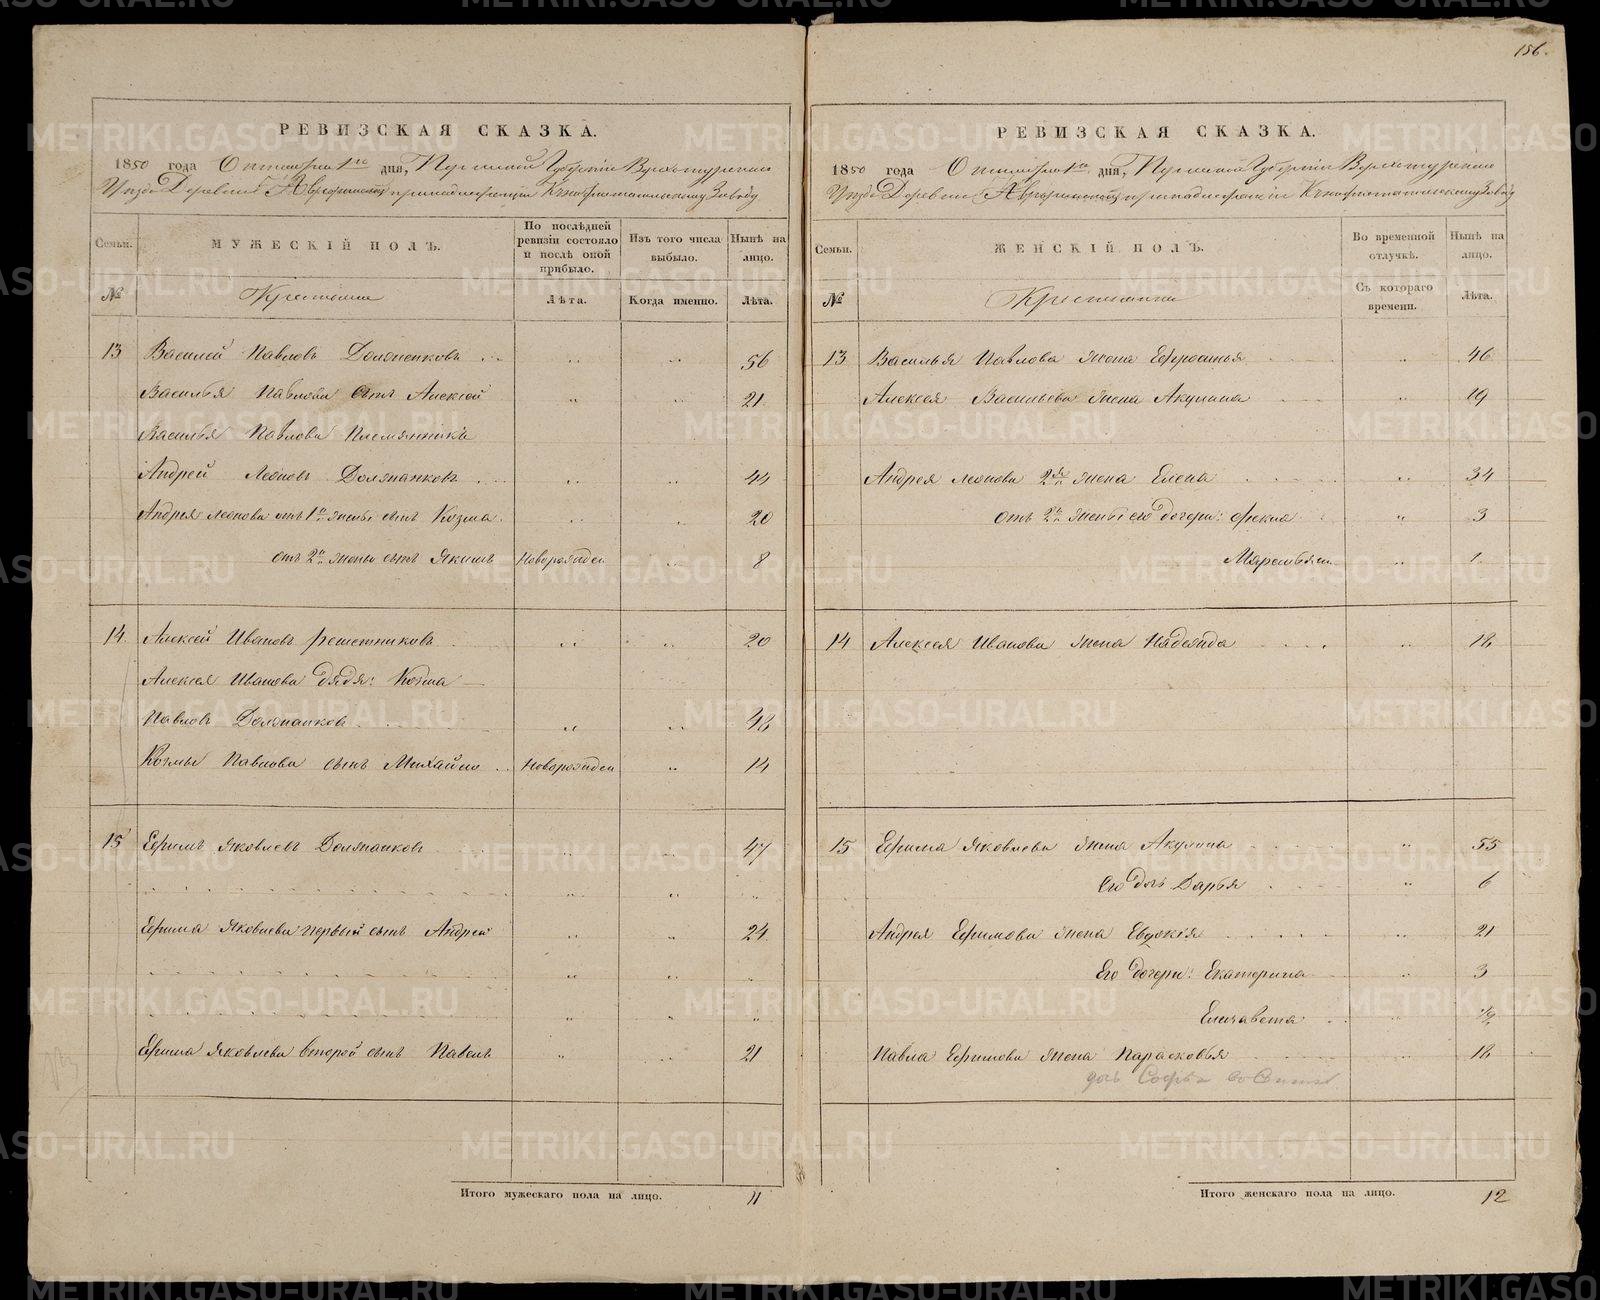 156.
РЕВИЗСКАЯ СКАЗКА.
1850 года Октября 1го дня, Пермской Губернiи Верхотурскаго
Уѣзда Деревни принадлежащей Къ Нижнетагильскому Заводу
Семьи. МУЖЕСКIЙ ПОЛЪ. По послѣдней ревизiи состояло и послѣ оной прибыло. Изъ того числа выбыло. Нынѣ на лицо.
№ Крестьяне Лѣта. Когда именно. Лѣта.
13 Василей Павловъ Долматовъ 56
Василья Павлова сынъ Алексѣй 21
Василья Павлова Племянника
Андрей Леоновъ 44
Андрея Леонова отъ 1й жены сынъ Козма 20
отъ 2й жены сынъ Якимъ Новорожден 8
14 Алексѣй Ивановъ Решетниковъ 20
Алексея Иванова дядя: Козма
Павловъ 48
Козмы Павлова сынъ Михайло Новорожден 14
15 Ефимъ Яковлевъ 47
Ефима Яковлева первый сынъ Андрей 24
Ефима Яковлева второй сынъ Павелъ 21
Итого мужескаго пола на лицо. 11
РЕВИЗСКАЯ СКАЗКА.
1850 года Октября 1го дня, Пермской Губернiи Верхотурскаго
Уѣзда Деревни принадлежащей Къ Нижнетагильскому Заводу
Семьи. ЖЕНСКIЙ ПОЛЪ. Во временной отлучкѣ. Нынѣ на лицо.
№ Крестьянки Съ котораго времени. Лѣта.
13 Василья Павлова жена Ефросинья 46
Алексея Васильева жена Акулина 19
Андрея Леонова 2я жена Елена 34
отъ 2й жены его дочери: Фекла 3
Маремьяна 1
14 Алексея Иванова жена Надежда 18
15 Ефима Яковлева жена Акулина 55
Его дочь Дарья 6
Андрея Ефимова жена Евдокiя 21
Его дочери: Екатерина 3
Елизавета ½
Павла Ефимова жена Парасковья 18
дочь Софья
Итого женскаго пола на лицо. 12
METRIKI.GASO-URAL.RU